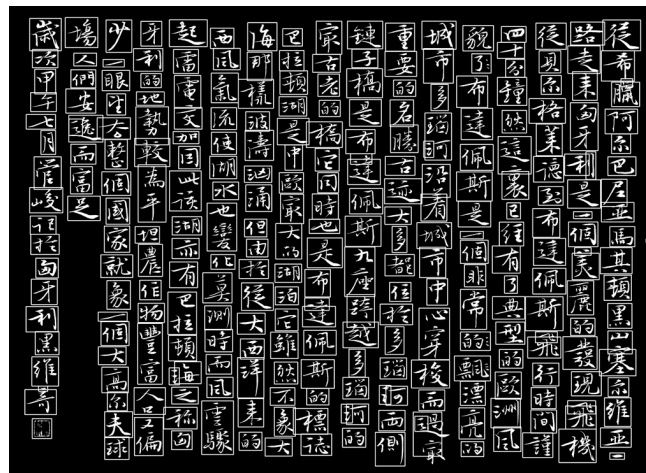 從希臘阿尔巴尼亚馬其頓黑山塞尔維亚一
路走来匈牙利是一個美麗的發現飛機
從貝尔格莱德到布達佩斯飛行時間謹
四十分鐘然這裏已經有了典型的歐洲風
貌了布達佩斯是一個非常的飄漂亮的
城市多瑙河沿着城市中心穿梭而過最
重要的名勝古迹大多都位於多瑙河両側
鏈子橋是布達佩斯九座跨越多瑙河的
最古老的橋它同時也是布達佩斯的標誌
巴拉頓湖是中歐最大的湖泊它雖然不象大
海那樣波濤汹涌但由於從大西洋来的
西風氣流使湖水也變化莫測時而風雲驟
起雷電交加因此該湖亦有巴拉頓海之称匈
牙利的地勢較為平坦農作物豐富人口又偏
少一眼望去整個國家就象一個大高尔夫球
場人們安逸而富足
歲次甲午七月管峻記於匈牙利黑維哥